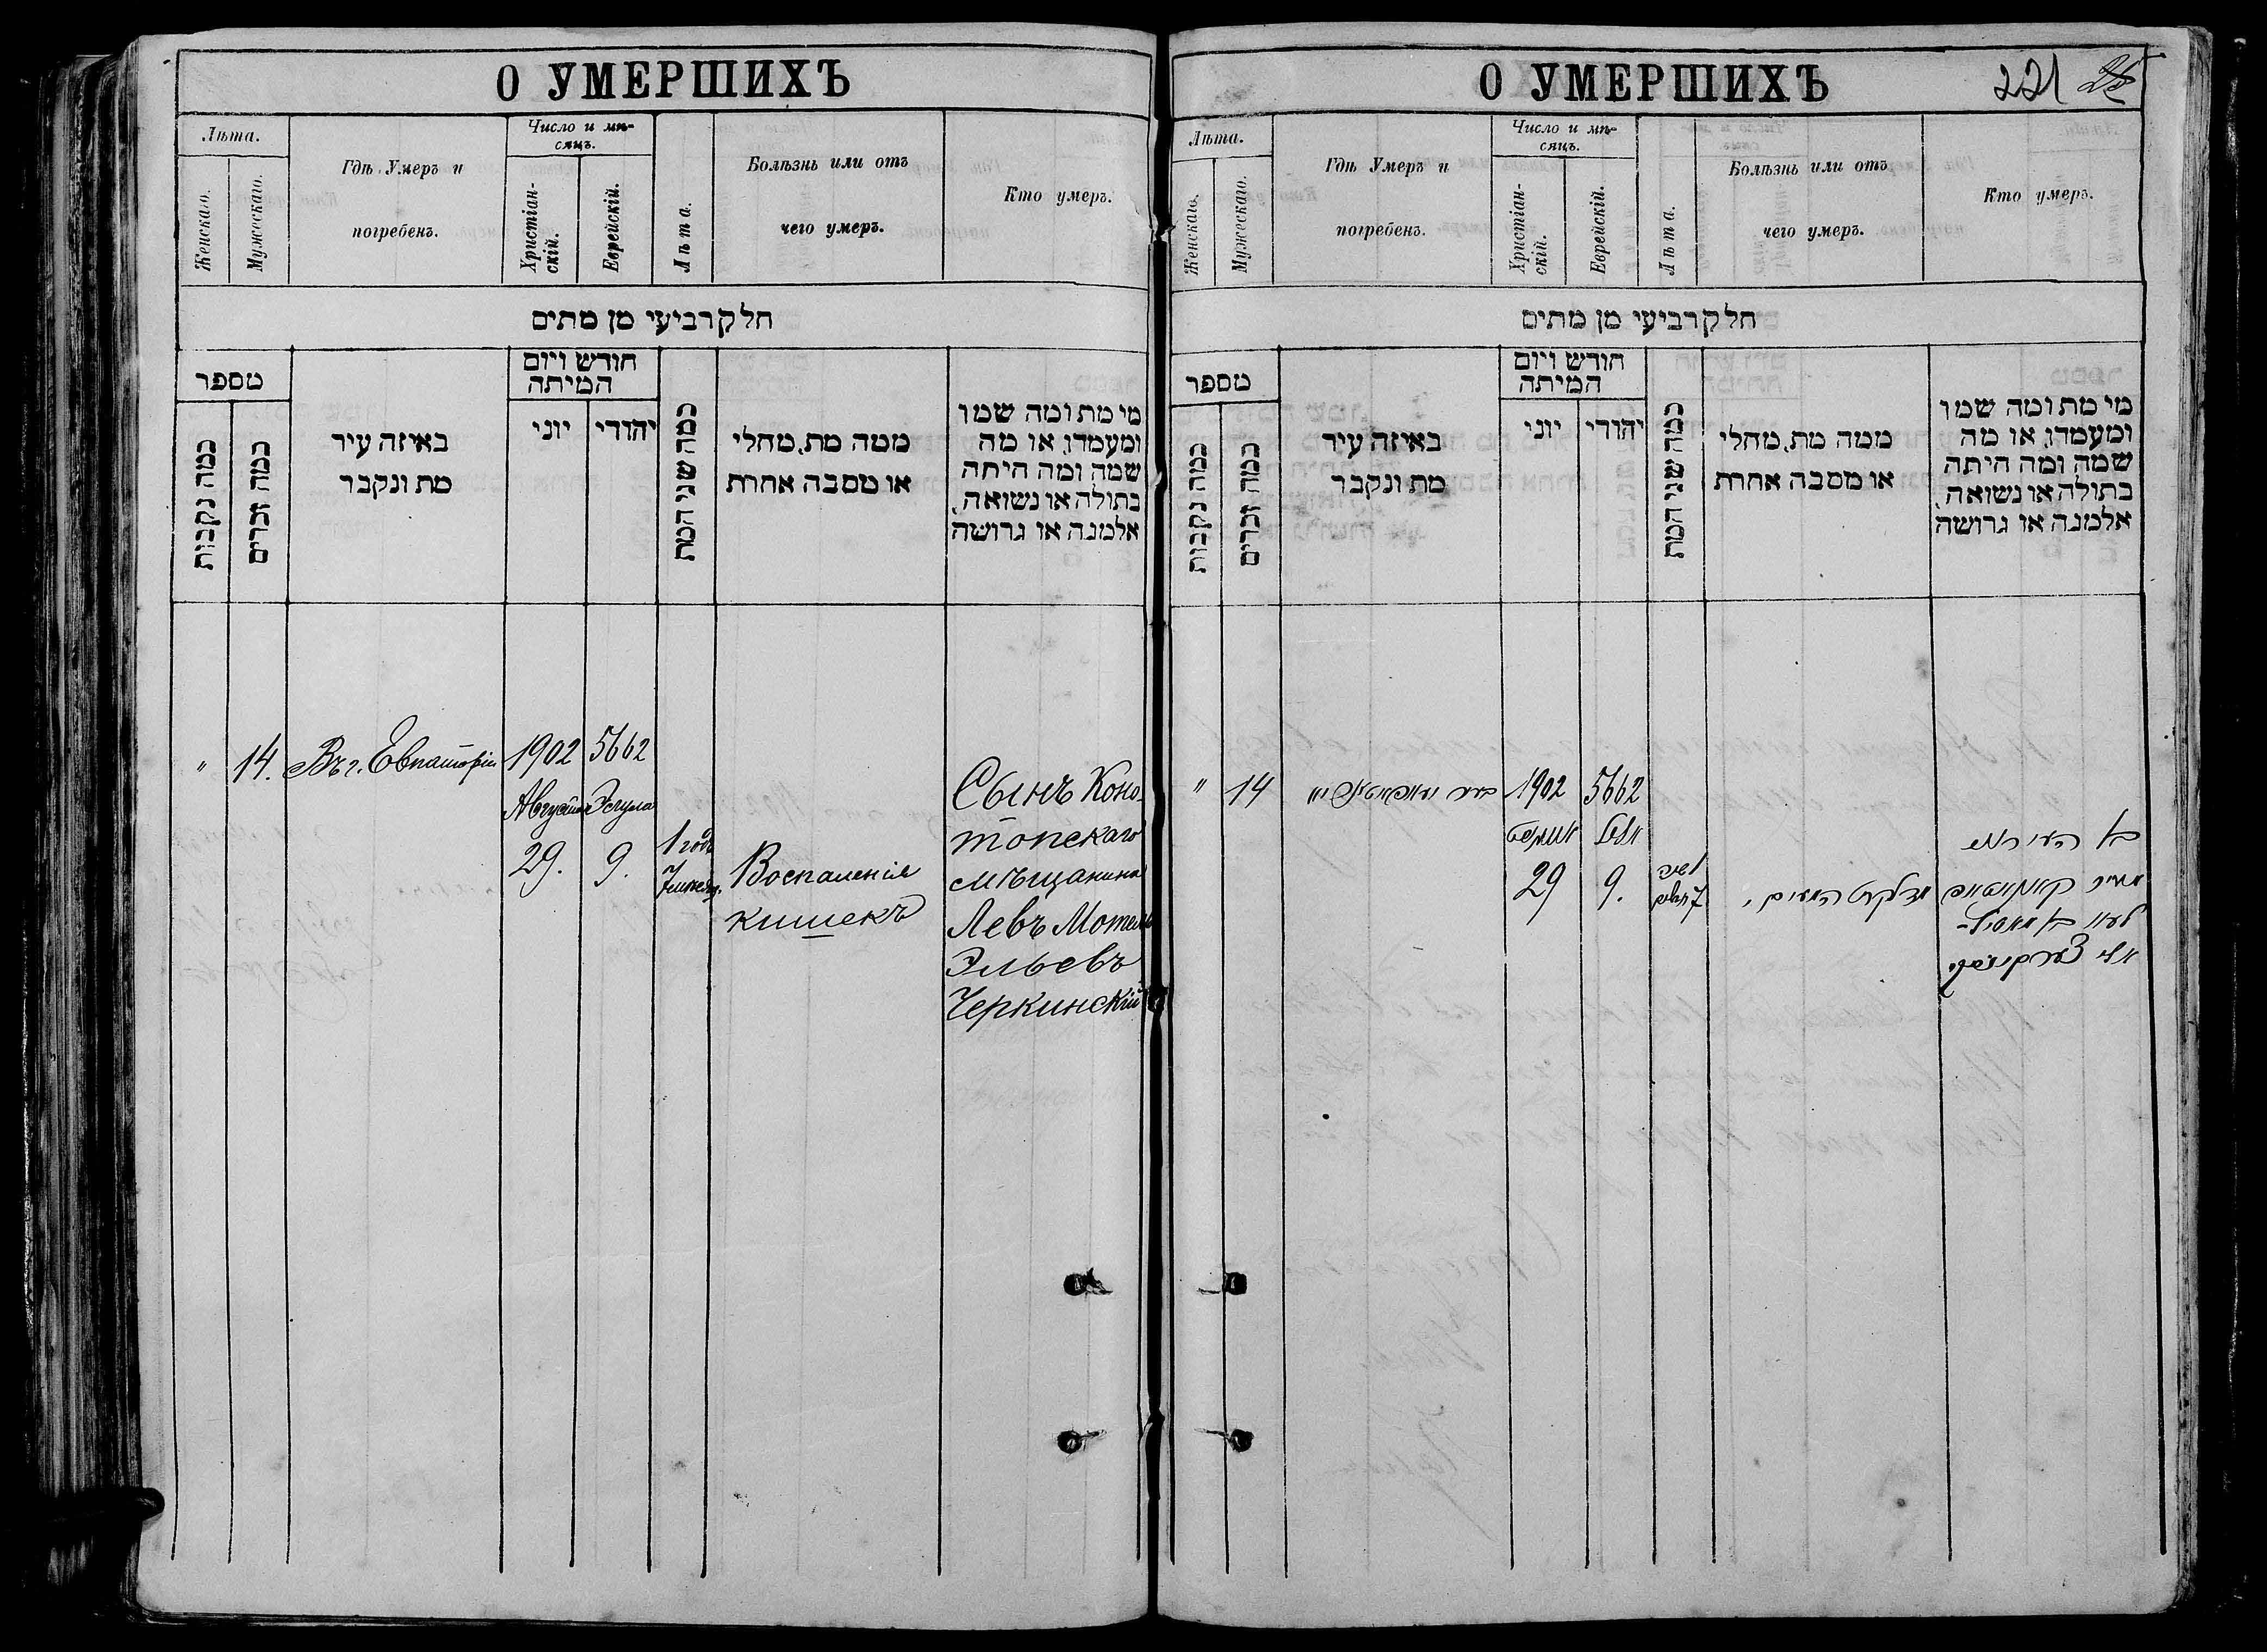 О УМЕРШИХЪ
Лѣта.
Женскаго.
Мужескаго.
Гдѣ Умеръ и
погребенъ.
Число и мѣ-
сяцъ.
Христіан-
скій.
Еврейскій.
Лѣта.
Болѣзнь или отъ
чего умеръ.
Кто умеръ.
חלק רביעי מן מתים
מספר
כמה נקבות
כמה זכרים
באיזה עיר
מת ונקבר
חודש ויום
המיתה
יוני
יהודי
כמה שני המת
ממה מת, מחלי
או מסבה אחרת
מי מת ומה שמו
ומעמדו, או מה
שמה ומה היתה
בתולה או נשואה,
אלמנה או גרושה
" 14. Въ г. Евпаторіи 1902 5662
Августа
29. 9.
1 годъ
Воспаленія
кишекъ
Сынъ Коно-
топскаго
мѣщанина
Левъ Мотель
Эльевъ
Черкинскій
О УМЕРШИХЪ
221
Лѣта.
Женскаго.
Мужескаго.
Гдѣ Умеръ и
погребенъ.
Число и мѣ-
сяцъ.
Христіан-
скій.
Еврейскій.
Лѣта.
Болѣзнь или отъ
чего умеръ.
Кто умеръ.
חלק רביעי מן מתים
מספר
כמה נקבות
כמה זכרים
באיזה עיר
מת ונקבר
חודש ויום
המיתה
יוני
יהודי
כמה שני המת
ממה מת, מחלי
או מסבה אחרת
מי מת ומה שמו
ומעמדו, או מה
שמה ומה היתה
בתולה או נשואה,
אלמנה או גרושה
" 14 1902 5662
אלול
29 9.
מדלקת המעים
בן